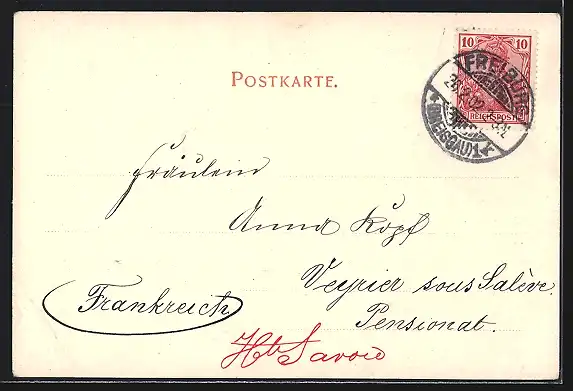 10 10
REICHSPOST
FREIBURG
(BREISGAU) 1
POSTKARTE.
Fräulein
Anna Kopf
Veyrier sous Salève.
Frankreich
Pensionat.
Hte Savoie